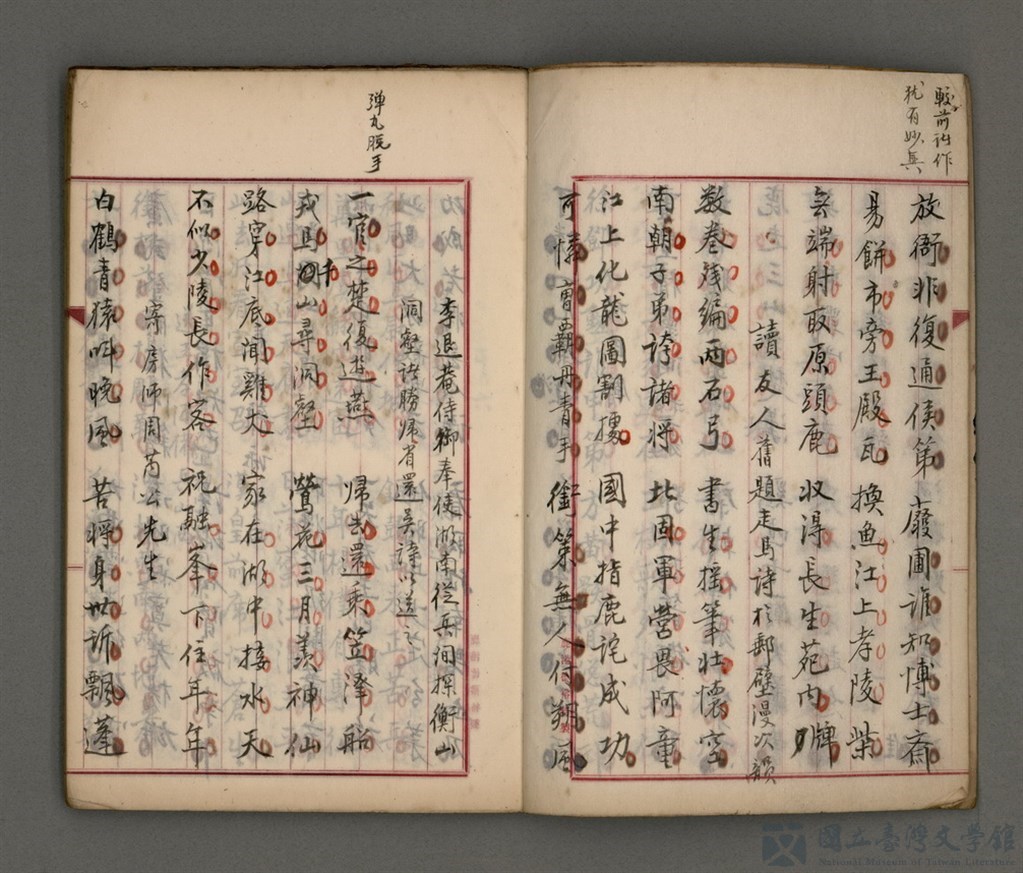 較前訪作
猶有妙無
放衙非復通侯第　廢圃誰知博士齋
易餅市旁王殿瓦　換魚江上孝陵柴
無端射取原頭鹿　收得長生苑內牌
讀友人舊題走馬詩於郵壁漫次韻
數卷殘編兩石弓　書生搖筆壯懷空
南朝子弟誇諸將　北固軍營畏阿童
江上化龍圖割據　國中指鹿詫成功
可憐曹霸丹青手　銜策無人付朔風
彈丸脫手
李退菴侍御奉使湖南從兵間探衡山
洞壑諸勝歸省還吳詩以送之
一官之楚復遊燕　歸去還乘笠澤船
戎馬千山尋洞壑　鶯花三月羨神仙
路穿江底聞雞犬　家在湖中接水天
不似少陵長作客　祝融峯下住年年
寄房師周芮公先生
白鶴青猿叫晚風　苦將身世訴飄蓬
國立臺灣文學館
National Museum of Taiwan Literature